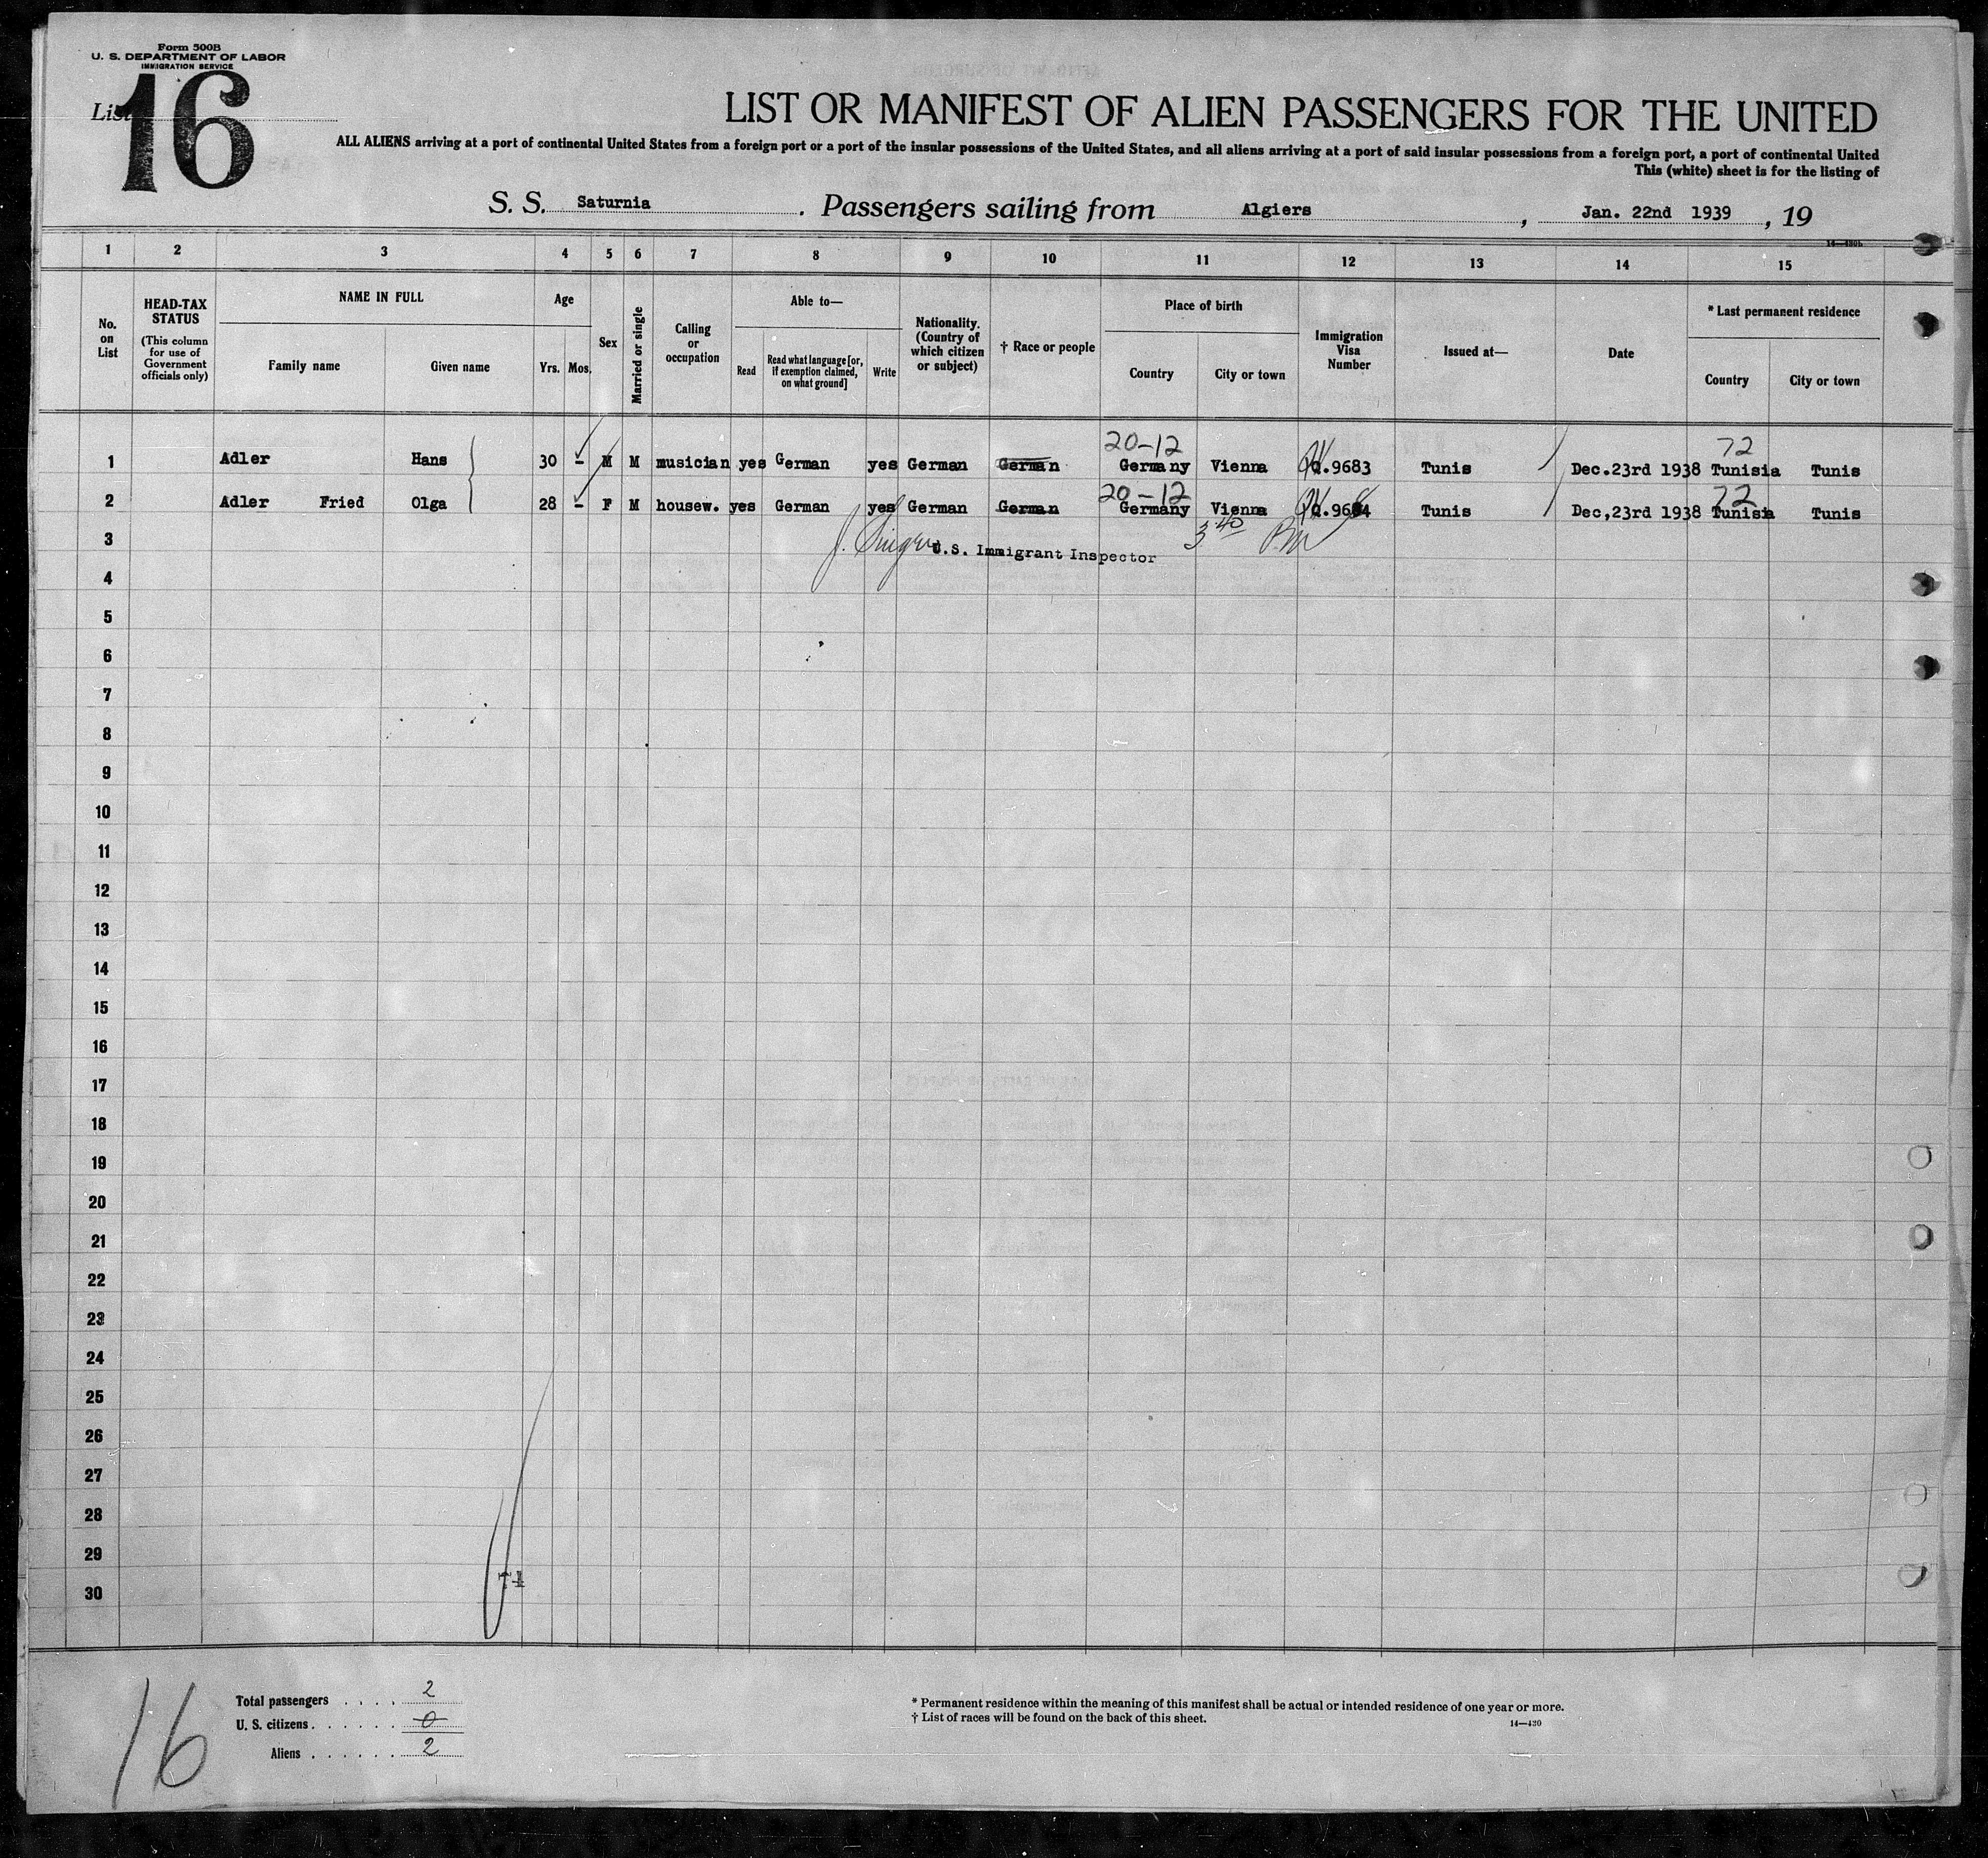 Form 500B
U. S. DEPARTMENT OF LABOR
IMMIGRATION SERVICE
List 16
LIST OR MANIFEST OF ALIEN PASSENGERS FOR THE UNITED
ALL ALIENS arriving at a port of continental United States from a foreign port or a port of the insular possessions of the United States, and all aliens arriving at a port of said insular possessions from a foreign port, a port of continental United
This (white) sheet is for the listing of
S. S. Saturnia . Passengers sailing from Algiers , Jan. 22nd 1939 , 19
14—430b
1 2 3 4 5 6 7 8 9 10 11 12 13 14 15
No. on List
HEAD-TAX STATUS
(This column for use of Government officials only)
NAME IN FULL
Family name Given name
Age
Yrs. Mos.
Sex
Married or single
Calling or occupation
Able to—
Read Read what language [or, if exemption claimed, on what ground] Write
Nationality. (Country of which citizen or subject)
† Race or people
Place of birth
Country City or town
Immigration Visa Number
Issued at—
Date
* Last permanent residence
Country City or town
20-12 72
1 Adler Hans 30 - M M musician yes German yes German German Germany Vienna Q.9683 Tunis Dec.23rd 1938 Tunisia Tunis
20-12 72
2 Adler Fried Olga 28 - F M housew. yes German yes German German Germany Vienna Q.9684 Tunis Dec,23rd 1938 Tunisia Tunis
3 U.S. Immigrant Inspector 3 40 P.M
4
5
6
7
8
9
10
11
12
13
14
15
16
17
18
19
20
21
22
23
24
25
26
27
28
29
30
16
Total passengers . . . . 2
U. S. citizens . . . . . . 0
Aliens . . . . . . 2
* Permanent residence within the meaning of this manifest shall be actual or intended residence of one year or more.
† List of races will be found on the back of this sheet.
14—430